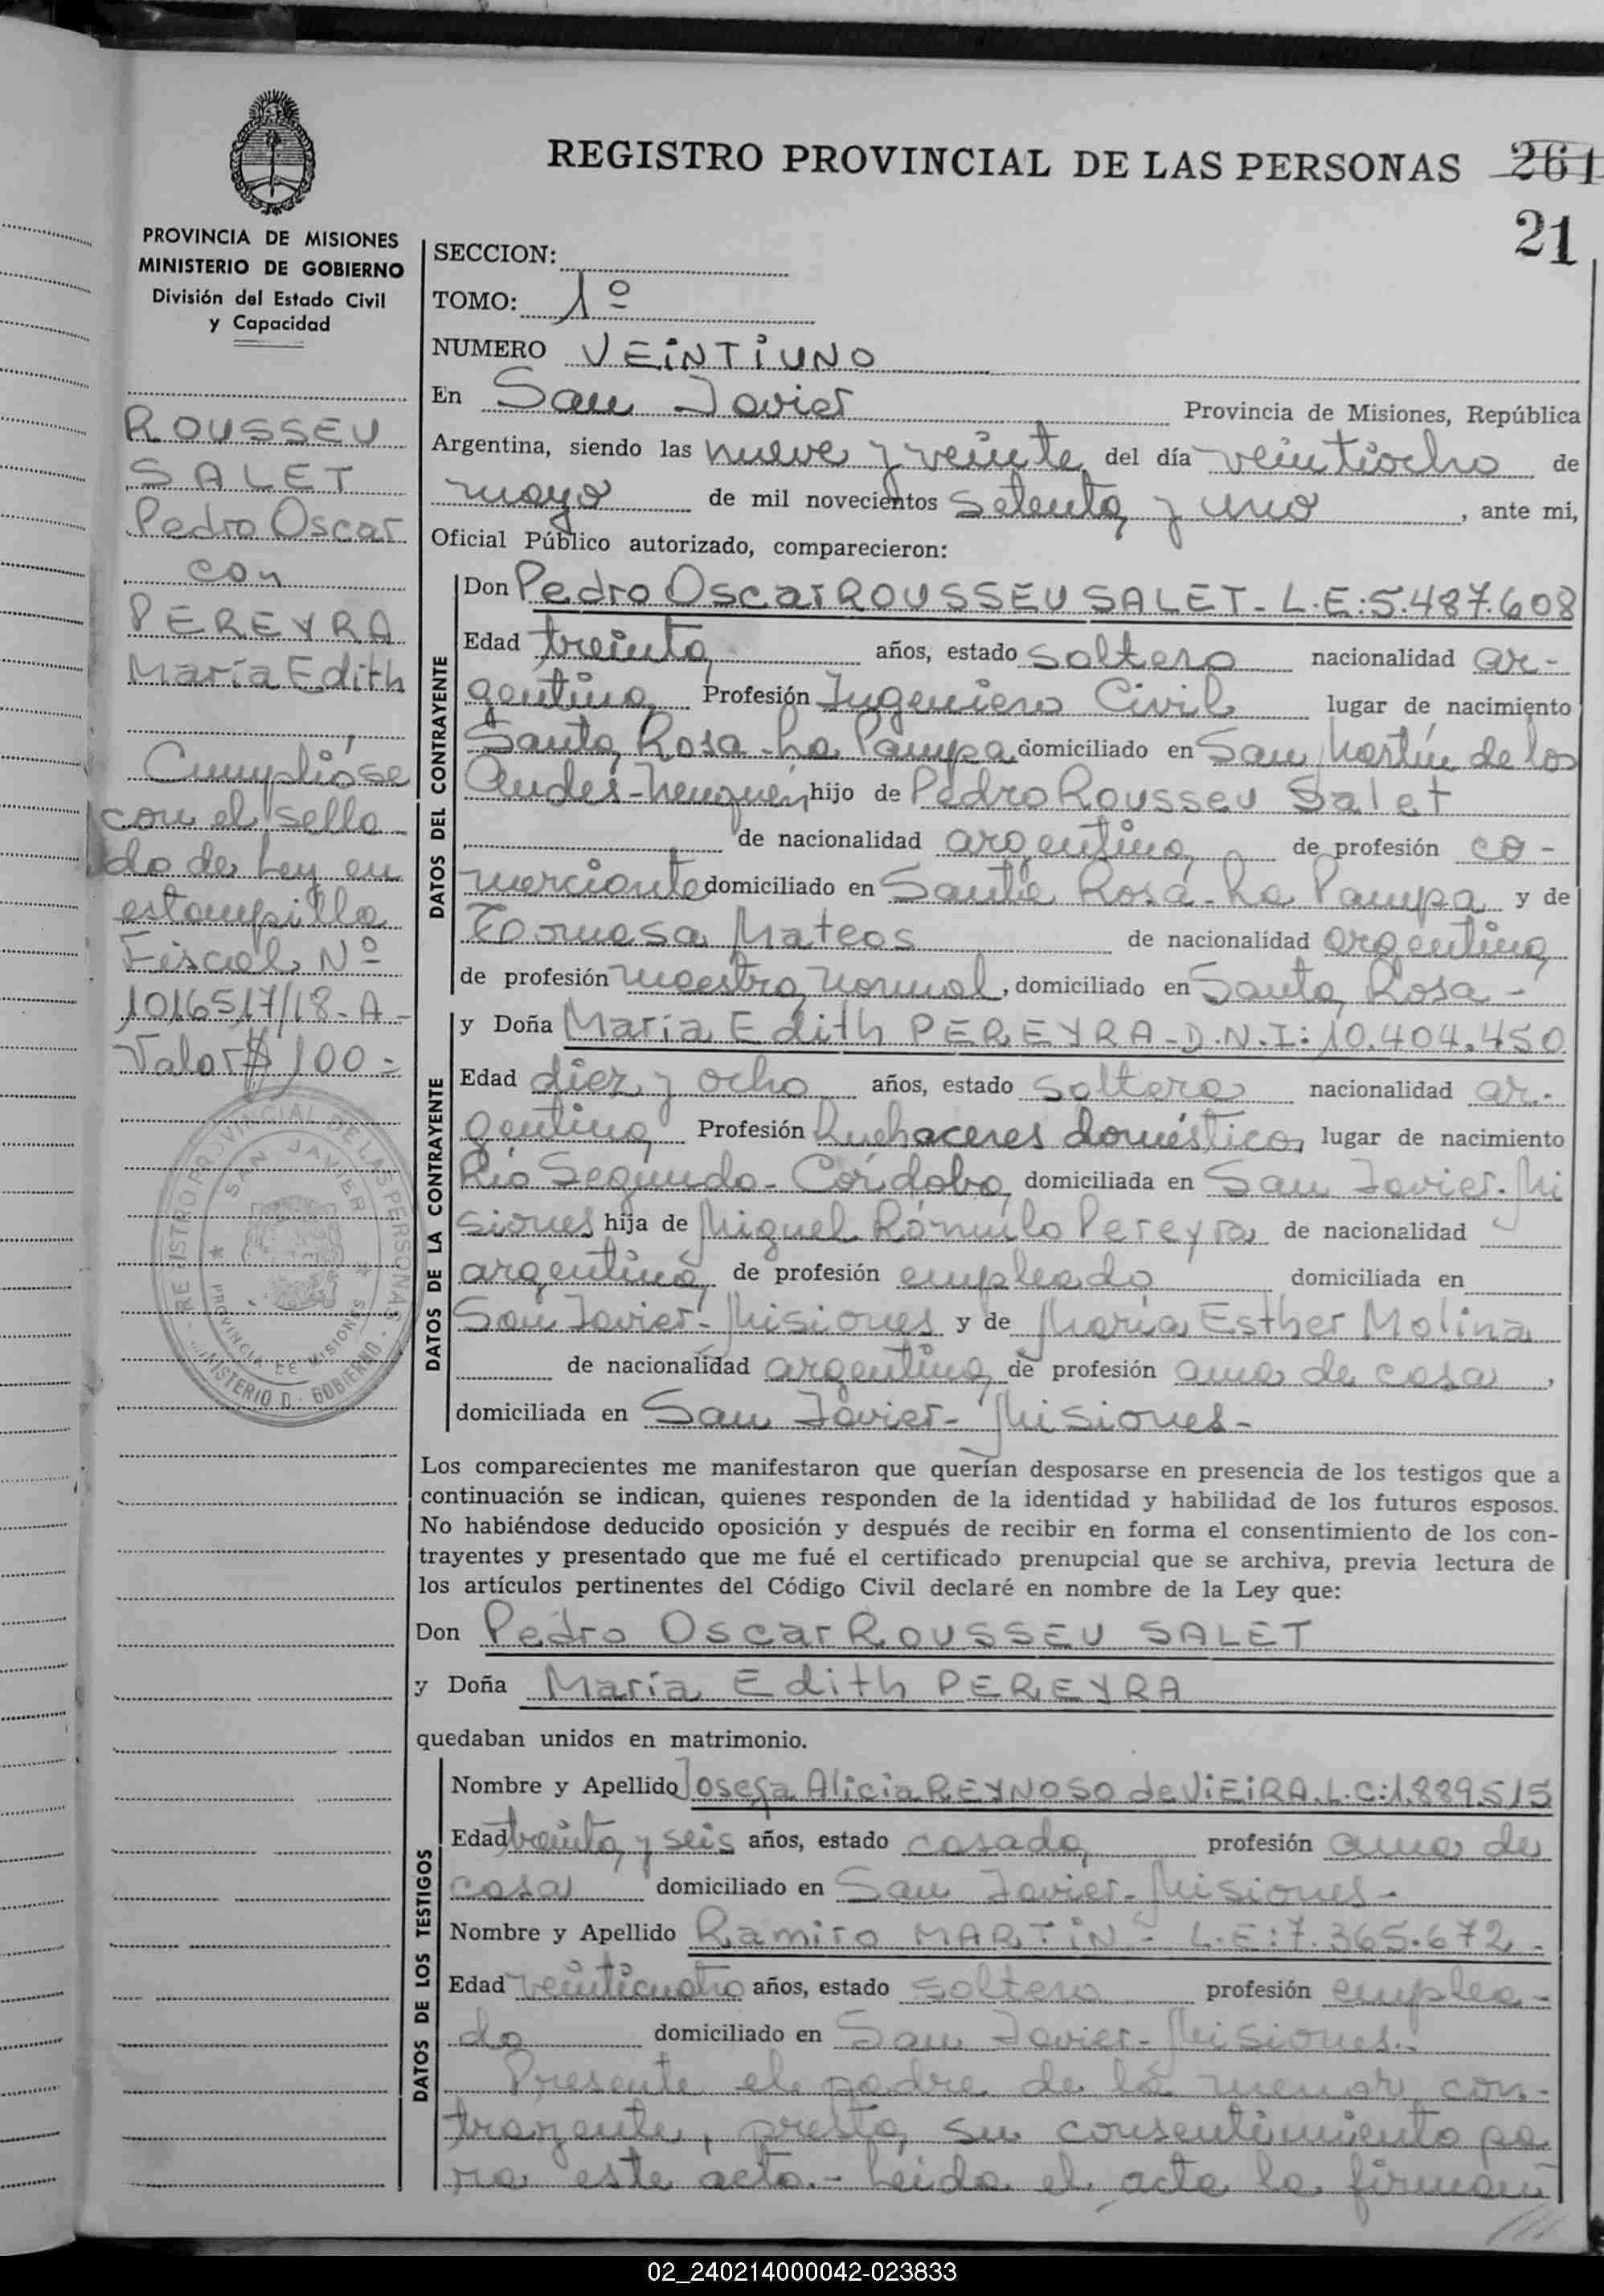 REGISTRO PROVINCIAL DE LAS PERSONAS 261
21
PROVINCIA DE MISIONES
MINISTERIO DE GOBIERNO
División del Estado Civil
y Capacidad
ROUSSEU
SALET
Pedro Oscar
con
PEREYRA
María Edith
Cumplióse
con el sella-
do de Ley en
estampilla
Fiscal Nº
1016517/18-A-
Valor $ 100=
REGISTRO PROVINCIAL DE LAS PERSONAS
SAN JAVIER
PROVINCIA DE MISIONES
MINISTERIO D. GOBIERNO
SECCION:
TOMO: 1º
NUMERO VEINTIUNO
En San Javier Provincia de Misiones, República
Argentina, siendo las nueve y veinte del día veintiocho de
mayo de mil novecientos setenta y uno, ante mi,
Oficial Público autorizado, comparecieron:
DATOS DEL CONTRAYENTE
Don Pedro Oscar ROUSSEU SALET- L.E:5.487.608
Edad treinta años, estado soltero nacionalidad ar-
gentina Profesión Ingeniero Civil lugar de nacimiento
Santa Rosa-La Pampa domiciliado en San Martín de los
Andes-Neuquén hijo de Pedro Rousseu Salet
de nacionalidad argentina de profesión co-
merciante domiciliado en Santa Rosa-La Pampa y de
Tomasa Mateos de nacionalidad argentina
de profesión maestra normal, domiciliado en Santa Rosa-
DATOS DE LA CONTRAYENTE
y Doña María Edith PEREYRA-D.N.I:10.404.450
Edad diez y ocho años, estado soltera nacionalidad ar-
gentina Profesión Quehaceres doméstico, lugar de nacimiento
Río Segundo-Córdoba domiciliada en San Javier-Mi
siones hija de Miguel Rómulo Pereyra de nacionalidad
argentina de profesión empleado domiciliada en
San Javier-Misiones y de María Esther Molina
de nacionalidad argentina de profesión ama de casa,
domiciliada en San Javier-Misiones-
Los comparecientes me manifestaron que querían desposarse en presencia de los testigos que a
continuación se indican, quienes responden de la identidad y habilidad de los futuros esposos.
No habiéndose deducido oposición y después de recibir en forma el consentimiento de los con-
trayentes y presentado que me fué el certificado prenupcial que se archiva, previa lectura de
los artículos pertinentes del Código Civil declaré en nombre de la Ley que:
Don Pedro Oscar ROUSSEU SALET
y Doña María Edith PEREYRA
quedaban unidos en matrimonio.
DATOS DE LOS TESTIGOS
Nombre y Apellido Josefa Alicia REYNOSO de VIEIRA.L.C:1.889.515
Edad treinta y seis años, estado casada profesión ama de
casa domiciliado en San Javier-Misiones-
Nombre y Apellido Ramiro MARTIN- L.E:7.365.672-
Edad veinticuatro años, estado soltero profesión emplea-
do domiciliado en San Javier-Misiones.
Presente el padre de la menor con-
trayente, presta su consentimiento pa
ra este acto.- Leída el acta la firman
///
02_240214000042-023833